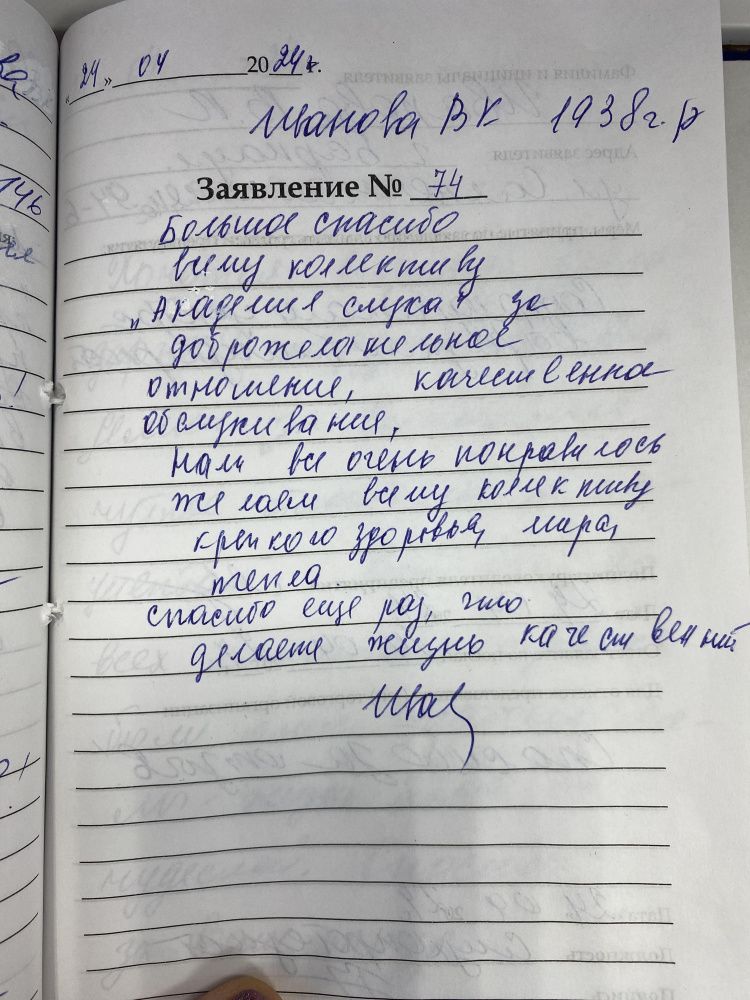 "24" 04 2024г.
Иванова ВК 1938г.р
Заявление № 74
Большое спасибо
всему коллективу
„Академия слуха" за
доброжелательное
отношение, качественное
обслуживание,
Нам все очень понравилось
желаем всему коллективу
крепкого здоровья, мира,
тепла.
спасибо еще раз, что
делаете жизнь качественней